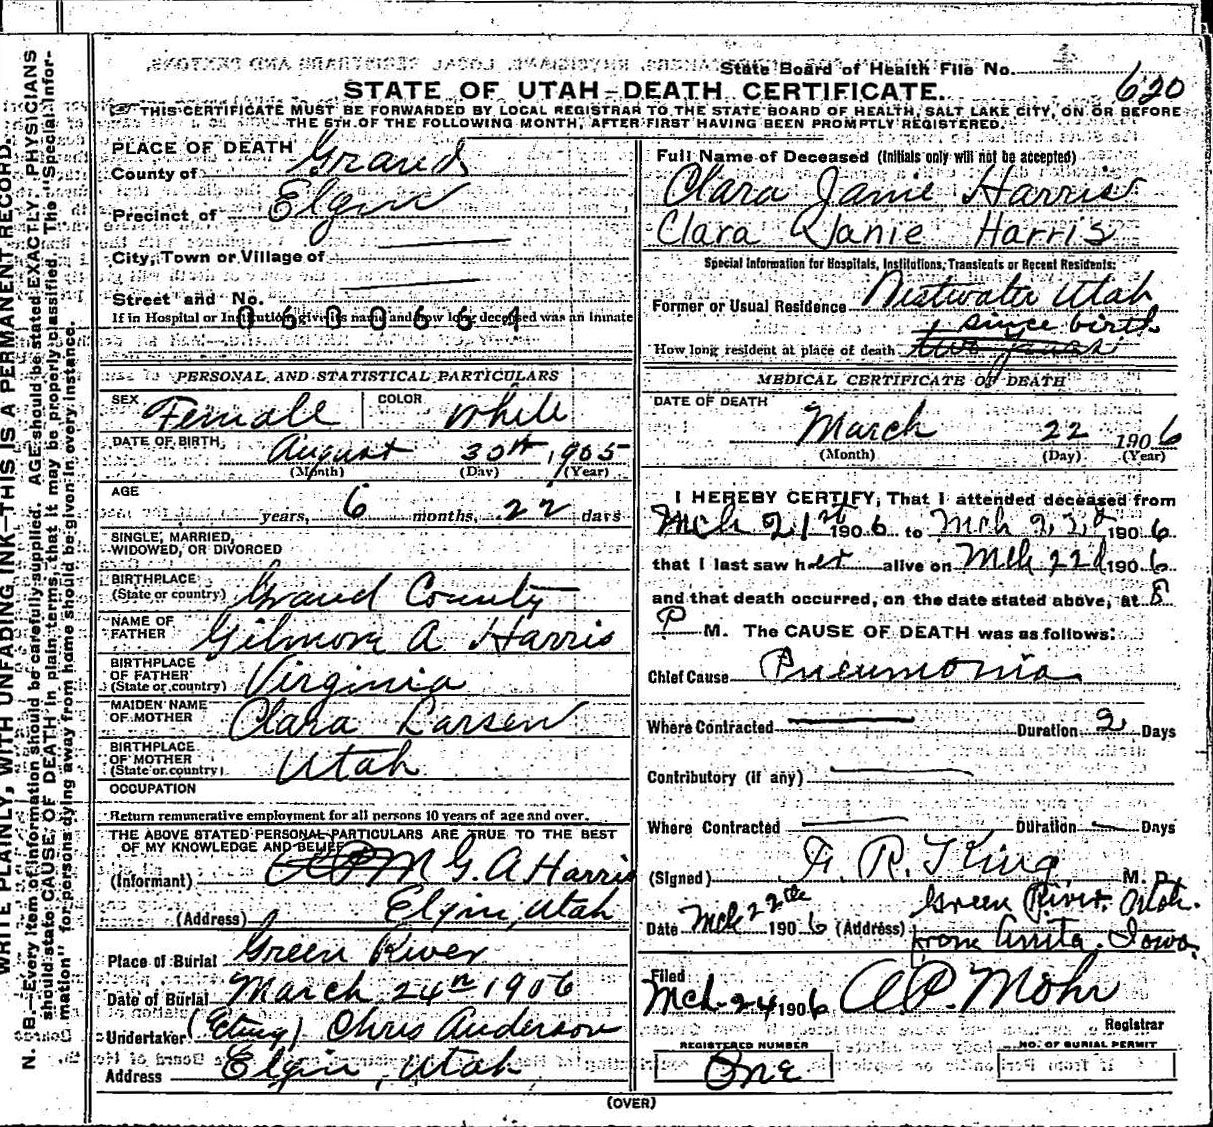 State Board of Health File No. 620
STATE OF UTAH—DEATH CERTIFICATE.
THIS CERTIFICATE MUST BE FORWARDED BY LOCAL REGISTRAR TO THE STATE BOARD OF HEALTH, SALT LAKE CITY, ON OR BEFORE
THE 5TH OF THE FOLLOWING MONTH, AFTER FIRST HAVING BEEN PROMPTLY REGISTERED.
WRITE PLAINLY, WITH UNFADING INK—THIS IS A PERMANENT RECORD.
N. B.—Every item of information should be carefully supplied. AGE should be stated EXACTLY. PHYSICIANS
should state CAUSE OF DEATH in plain terms, that it may be properly classified. The "Special Infor-
mation" for persons dying away from home should be given in every instance.
PLACE OF DEATH
County of Grand
Precinct of Elgin
City, Town or Village of
Street and No.
If in Hospital or Institution, give its name and how long deceased was an inmate
0600664
PERSONAL AND STATISTICAL PARTICULARS
SEX Female COLOR White
DATE OF BIRTH August 30th, 1905
(Month) (Day) (Year)
AGE
years, 6 months, 22 days
SINGLE, MARRIED,
WIDOWED, OR DIVORCED
BIRTHPLACE
(State or country) Grand County
NAME OF
FATHER Gilmore A Harris
BIRTHPLACE
OF FATHER
(State or country) Virginia
MAIDEN NAME
OF MOTHER Clara Larsen
BIRTHPLACE
OF MOTHER
(State or country) Utah
OCCUPATION
Return remunerative employment for all persons 10 years of age and over.
THE ABOVE STATED PERSONAL PARTICULARS ARE TRUE TO THE BEST
OF MY KNOWLEDGE AND BELIEF
(Informant) G. A Harris
(Address) Elgin, Utah
Place of Burial Green River
Date of Burial March 24th 1906
Undertaker (Acting) Chris Anderson
Address Elgin, Utah
Full Name of Deceased (Initials only will not be accepted)
Clara Janie Harris
Clara Janie Harris
Special Information for Hospitals, Institutions, Transients or Recent Residents:
Former or Usual Residence Westwater Utah
since birth
How long resident at place of death two years
MEDICAL CERTIFICATE OF DEATH
DATE OF DEATH
March 22 1906
(Month) (Day) (Year)
I HEREBY CERTIFY, That I attended deceased from
Mch 21st 1906 to Mch 22d 1906
that I last saw her alive on Mch 22d 1906
and that death occurred, on the date stated above, at 8
P M. The CAUSE OF DEATH was as follows:
Chief Cause Pneumonia
Where Contracted Duration 2 Days
Contributory (if any)
Where Contracted Duration Days
(Signed) R. J King M. D.
Green River. Utah.
Date Mch 22th 1906 (Address) from Anita. Iowa.
Filed
Mch-24 1906 A.P. Mohr
Registrar
REGISTERED NUMBER
One
NO. OF BURIAL PERMIT
(OVER)